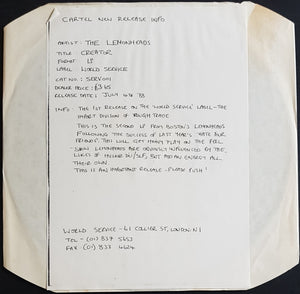 CARTEL NEW RELEASE INFO
ARTIST: THE LEMONHEADS
TITLE: CREATOR
FORMAT: LP
LABEL: WORLD SERVICE
CAT NO: SERV001
DEALER PRICE: £3.65
RELEASE DATE: JULY 4TH '88
INFO: THE 1ST RELEASE ON THE 'WORLD SERVICE' LABEL - THE
IMPORT DIVISION OF ROUGH TRADE
THIS IS THE SECOND LP FROM BOSTON'S LEMONHEADS
FOLLOWING THE SUCCESS OF LAST YEAR'S 'HATE YOUR
FRIENDS'. THIS WILL GET HEAVY PLAY ON THE PEEL
SHOW. LEMONHEADS ARE OBVIOUSLY INFLUENCED BY THE
LIKES OF HUSKER DU/SLF, BUT ADD AN ENERGY ALL
THEIR OWN.
THIS IS AN IMPORTANT RELEASE - PLEASE PUSH!
WORLD SERVICE - 61 COLLIER ST, LONDON N1
TEL - (01) 837
FAX - (01) 837